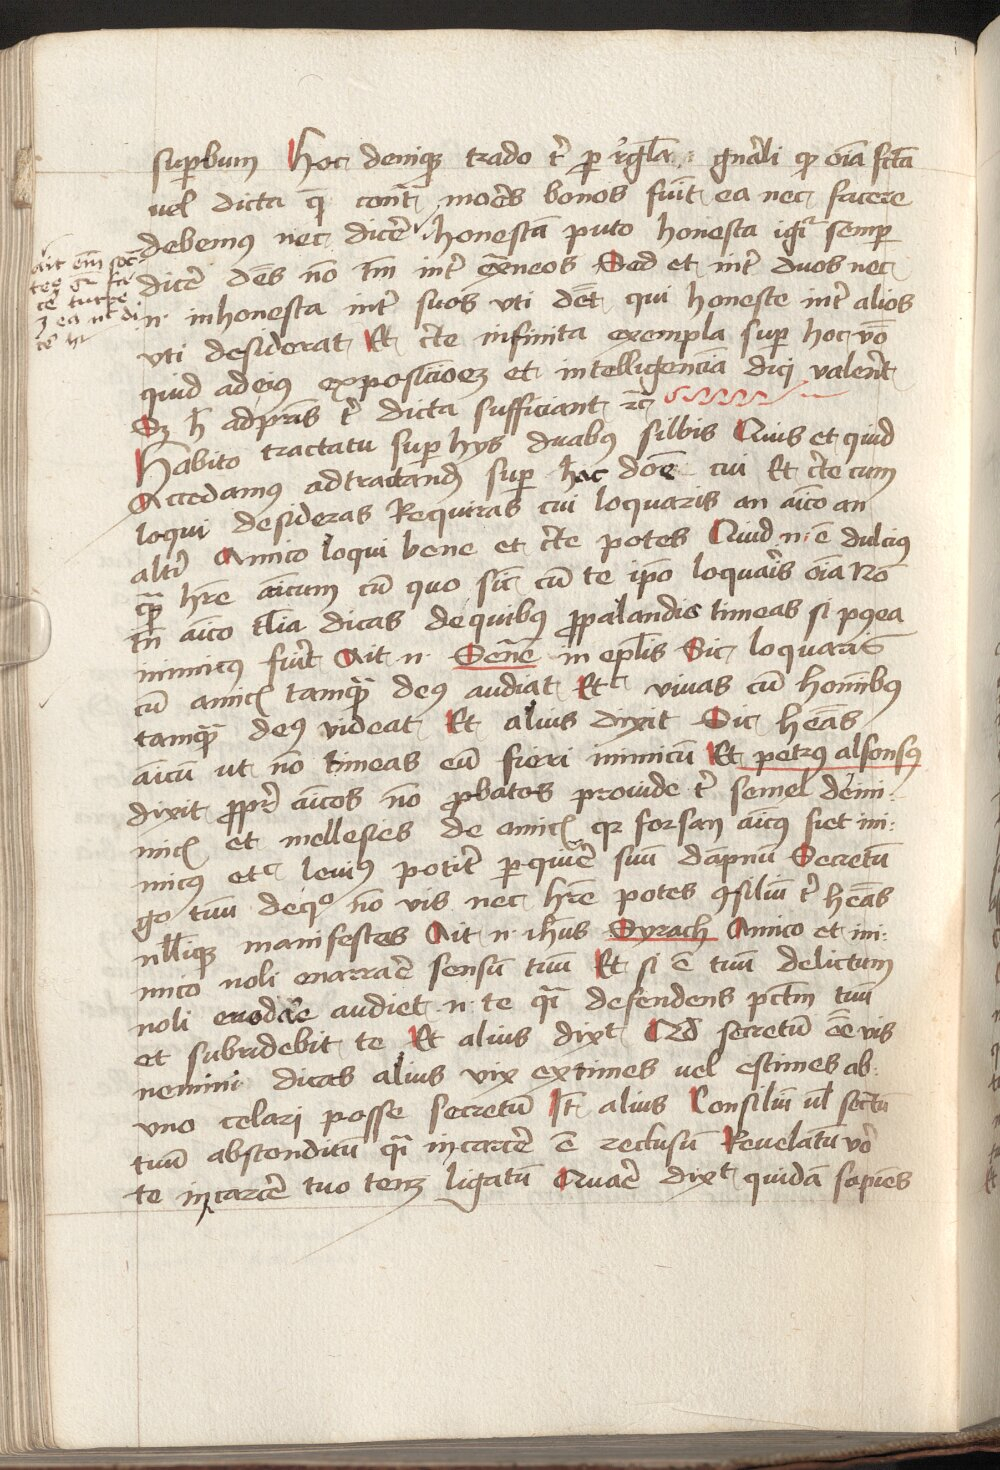 superbum Hoc denique trado t̄ pro r̄gla gn̄ali qp oīa fc̄ta
vel dicta q̄ cont̄ mor̄es bonos fūit ea nec facere
debemus nec dicer̄e honestam puto honesta igit̄ semper
dicer̄e dēs nō tm̄ int̄ ext̄neos Sed et int̄ duos nec
n inhonesta int̄ suos vti dēt qui honeste int̄ alios
vti desiderat Et c̄te infinita exempla super hoc vō
quid ad eius exposicōem et intelligencīa dici valer̄ent
Sz h̄ ad pn̄s t̄ dicta sufficiant rc̄
Habito tractatu super hys duabus sillbis Quis et quid
Accedamus ad tractand super hac doē cui Et c̄te cum
loqui desideras Requiras cui loquaris an amīco an
alt̄i Amico loqui bene et c̄te potes Quid n ē dulcius
qm̄ hr̄e amīcum cū quo sic cū te ipō loquar̄is oīa Nō
tn̄ amīco tl̄ia dicas de quibus propalandis timeas si p9ea
inimicus fuīt Ait n Senec̄ in epl̄is Sic loquar̄is
cū amic tamqm̄ deus audiat Et viuas cū homībus
tamqm̄ deus videat Et alius dixit Sic hēas
amīcū ut nō timeas eū fieri inimicū Et petrus alfonsus
dixit propr̄ amīcos nō probatos prouide t̄ semel de inī
mic et millesies de amic qr forsan amīcus fiet ini
micus etc leuius potit̄ perquir̄e suū dāpnū Secretū
go tuū de quo nō vis nec hr̄e potes 9siliū t̄ hēas
nlliqz manifestes Ait n ihus Syrach Amico et ini
mico noli enarrar̄e sensū tuū Et si ē tuū delictum
noli euodar̄e audiet n te qī defendens pctm̄ tuū
et subridebit te Et alius dixt Qd̄ secretū eē vis
nemini dicas alius vix extimes vel estimes ab
vno celari posse secretū It̄ alius Consiliū vl̄ secr̄tū
tuū absconditū qī in carcer̄e ē reclusū Reuelatū vō
te in carcer̄e tuo tenz ligatū Quar̄e dixt quidā sapiens
ait em̄ soc
tes q̄ fac
cē turpe
z ea nec di
cē